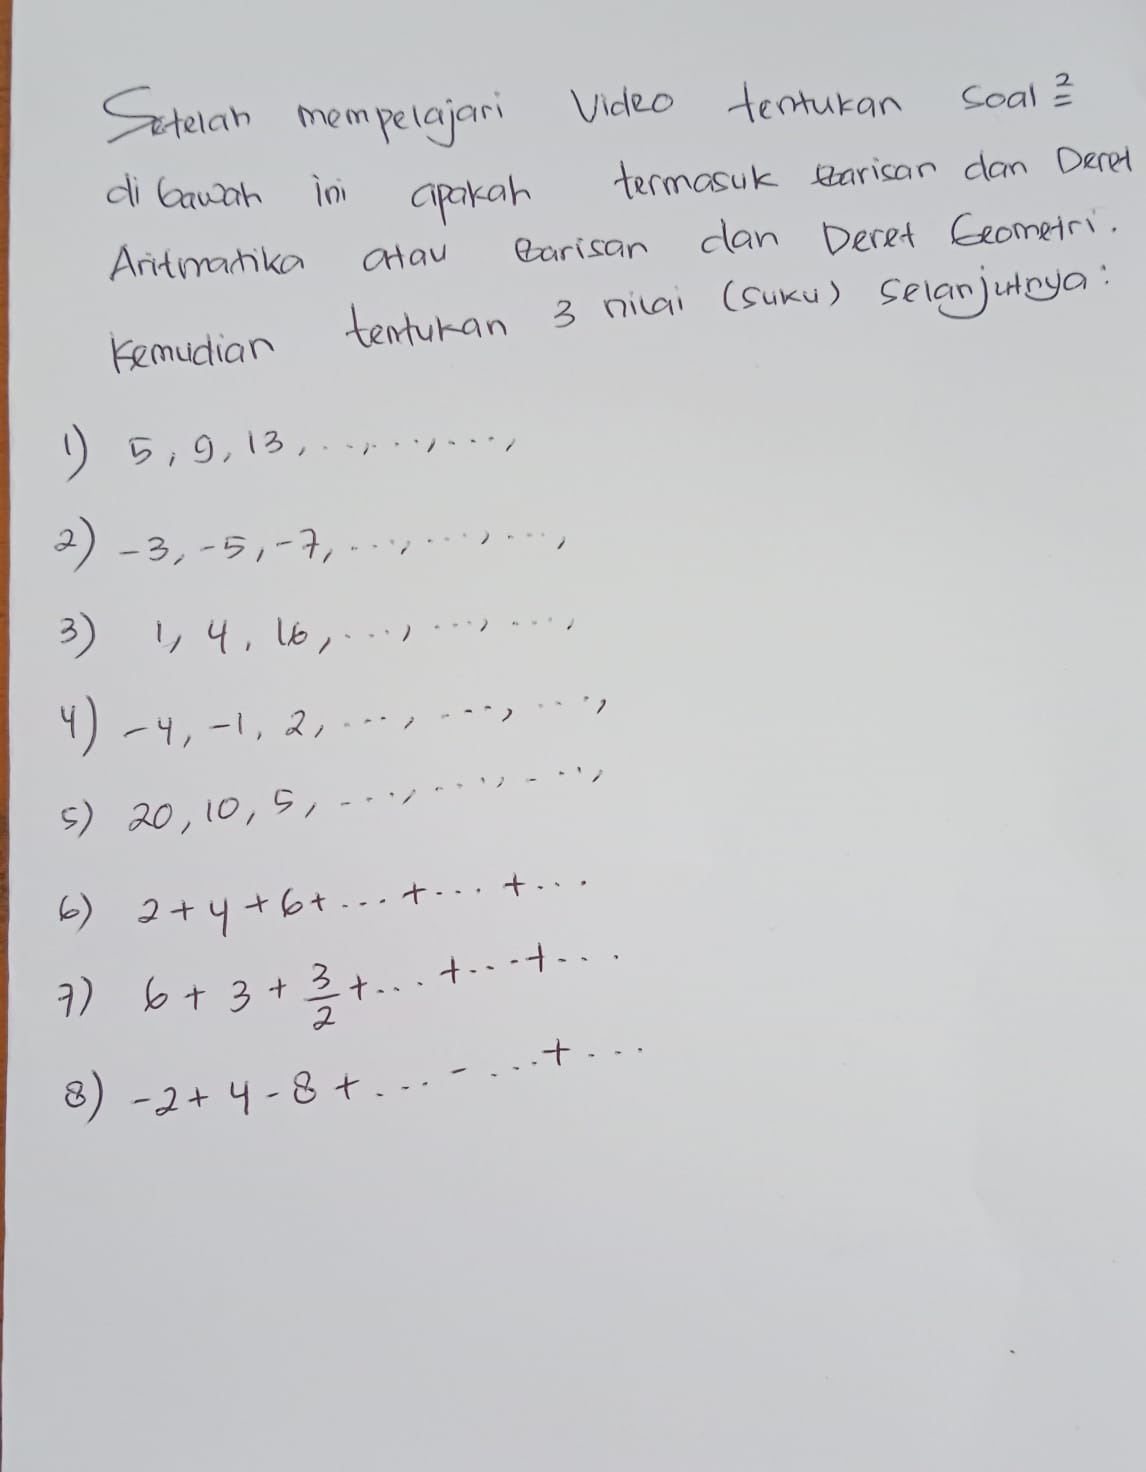 Setelah mempelajari Video tentukan Soal²
di bawah ini apakah termasuk Barisan dan Deret
Aritmatika atau Barisan dan Deret Geometri.
Kemudian tentukan 3 nilai (suku) selanjutnya:
1) 5, 9, 13, ..., ..., ...,
2) -3, -5, -7, ..., ..., ...,
3) 1, 4, 16, ..., ..., ...,
4) -4, -1, 2, ..., ..., ...,
5) 20, 10, 5, ..., ..., ...,
6) 2 + 4 + 6 + ... + ... + ...
7) 6 + 3 + 3/2 + ... + ... + ...
8) -2 + 4 - 8 + ... - ... + ...